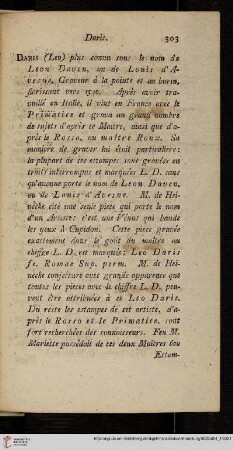 Daris. 303
DARIS (LEO) plus connu sous le nom de
LEON DAVEN, ou de LOUIS D'A-
VESNE, Graveur à la pointe et au burin,
florissant vers 1540. Après avoir tra-
vaillé en Italie, il vint en France avec le
Primatice et grava un grand nombre
de sujets d'après ce Maitre, ainsi que d'a-
près le Rosso, ou maître Roux. Sa
manière de graver lui étoit particulière:
la plupart de ses estampes sont gravées en
traits interrompus et marquées L. D. sans
qu'aucune porte le nom de Leon Daven,
ou de Louis d'Avesne. M. de Hei-
necke cite une seule pièce qui porte le nom
d'un Artiste: c'est une Vénus qui bande
les yeux à Cupidon. Cette piece gravée
exactement dans le goût du maître au
chiffre L. D. est marquée: Leo Daris
fe. Romae Sup. perm. M. de Hei-
necke conjecture avec grande apparence que
toutes les pieces avec le chiffre L. D. peu-
vent être attribuées à ce Leo Daris.
Du reste les estampes de cet artiste, d'a-
près le Rosso et le Primatice, sont
fort recherchées des connoisseurs. Feu M.
Mariette possédoit de ces deux Maitres 600
Estam-